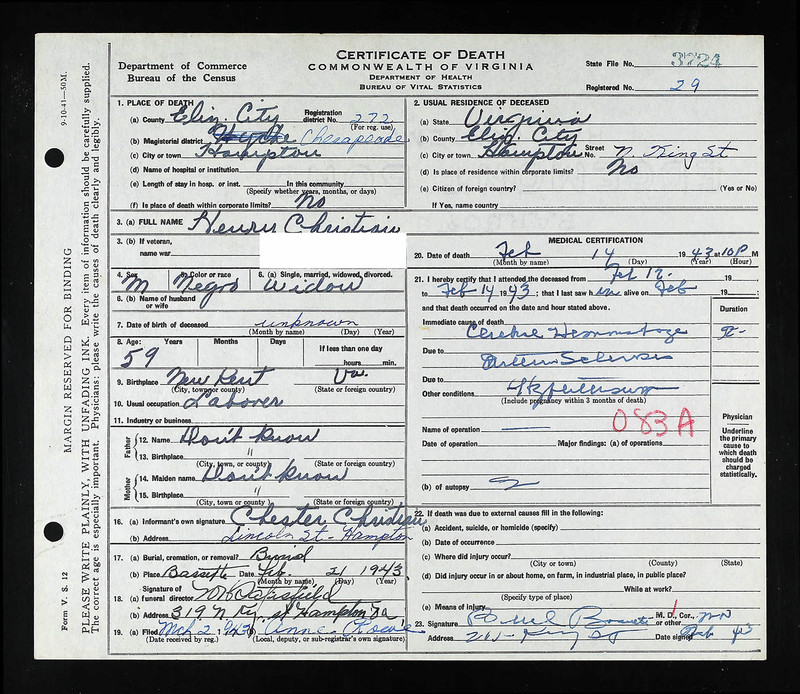 CERTIFICATE OF DEATH
COMMONWEALTH OF VIRGINIA
DEPARTMENT OF HEALTH
BUREAU OF VITAL STATISTICS
Department of Commerce
Bureau of the Census
State File No. 3724
Registered No. 29
9-10-41—50M.
MARGIN RESERVED FOR BINDING
PLEASE WRITE PLAINLY, WITH UNFADING INK. Every item of information should be carefully supplied.
The correct age is especially important. Physicians: please write the causes of death clearly and legibly.
Form V. S. 12
1. PLACE OF DEATH
(a) County Eliz. City Registration district No. 272
(For reg. use)
(b) Magisterial district Chesapeake
(c) City or town Hampton
(d) Name of hospital or institution
(e) Length of stay in hosp. or inst. In this community
(Specify whether years, months, or days)
(f) Is place of death within corporate limits? No
2. USUAL RESIDENCE OF DECEASED
(a) State Virginia
(b) County Eliz. City
(c) City or town Hampton Street No. N. King St
(d) Is place of residence within corporate limits? No
(e) Citizen of foreign country? (Yes or No)
If Yes, name country
3. (a) FULL NAME Henry Christian
3. (b) If veteran,
name war
4. Sex M 5. Color or race Negro 6. (a) Single, married, widowed, divorced. Widow
6. (b) Name of husband
or wife
7. Date of birth of deceased unknown
(Month by name) (Day) (Year)
8. Age: Years Months Days If less than one day
59 hours min.
9. Birthplace New Kent Va.
(City, town or county) (State or foreign country)
10. Usual occupation Laborer
11. Industry or business
Father
12. Name Don't know
13. Birthplace "
(City, town, or county) (State or foreign country)
Mother
14. Maiden name Don't know
15. Birthplace "
(City, town or county) (State or foreign country)
16. (a) Informant's own signature Chester Christian
(b) Address Lincoln St- Hampton
17. (a) Burial, cremation, or removal? Buried
(b) Place Bassette Date Feb. 21 1943
(Month by name) (Day) (Year)
18. (a) Signature of funeral director
(b) Address 319 N King st Hampton Va
19. (a) Filed Mch 2 1943 (b) Anne Rowe
(Date received by reg.) (Local, deputy, or sub-registrar's own signature)
MEDICAL CERTIFICATION
20. Date of death Feb 14 1943 at 10P M
(Month by name) (Day) (Year) (Hour)
21. I hereby certify that I attended the deceased from Feb 12- 19
to Feb 14 1943; that I last saw h im alive on Feb 19 ;
and that death occurred on the date and hour stated above.
Duration
Immediate cause of death
Due to
Due to
Other conditions
(Include pregnancy within 3 months of death)
083A
Name of operation —
Date of operation Major findings: (a) of operations
(b) of autopsy
Physician
Underline the primary cause to which death should be charged statistically.
22. If death was due to external causes fill in the following:
(a) Accident, suicide, or homicide (specify)
(b) Date of occurrence
(c) Where did injury occur?
(City or town) (County) (State)
(d) Did injury occur in or about home, on farm, in industrial place, in public place?
While at work?
(Specify type of place)
(e) Means of injury
23. Signature M. D., Cor., or other
Address King St Date signed Feb 43